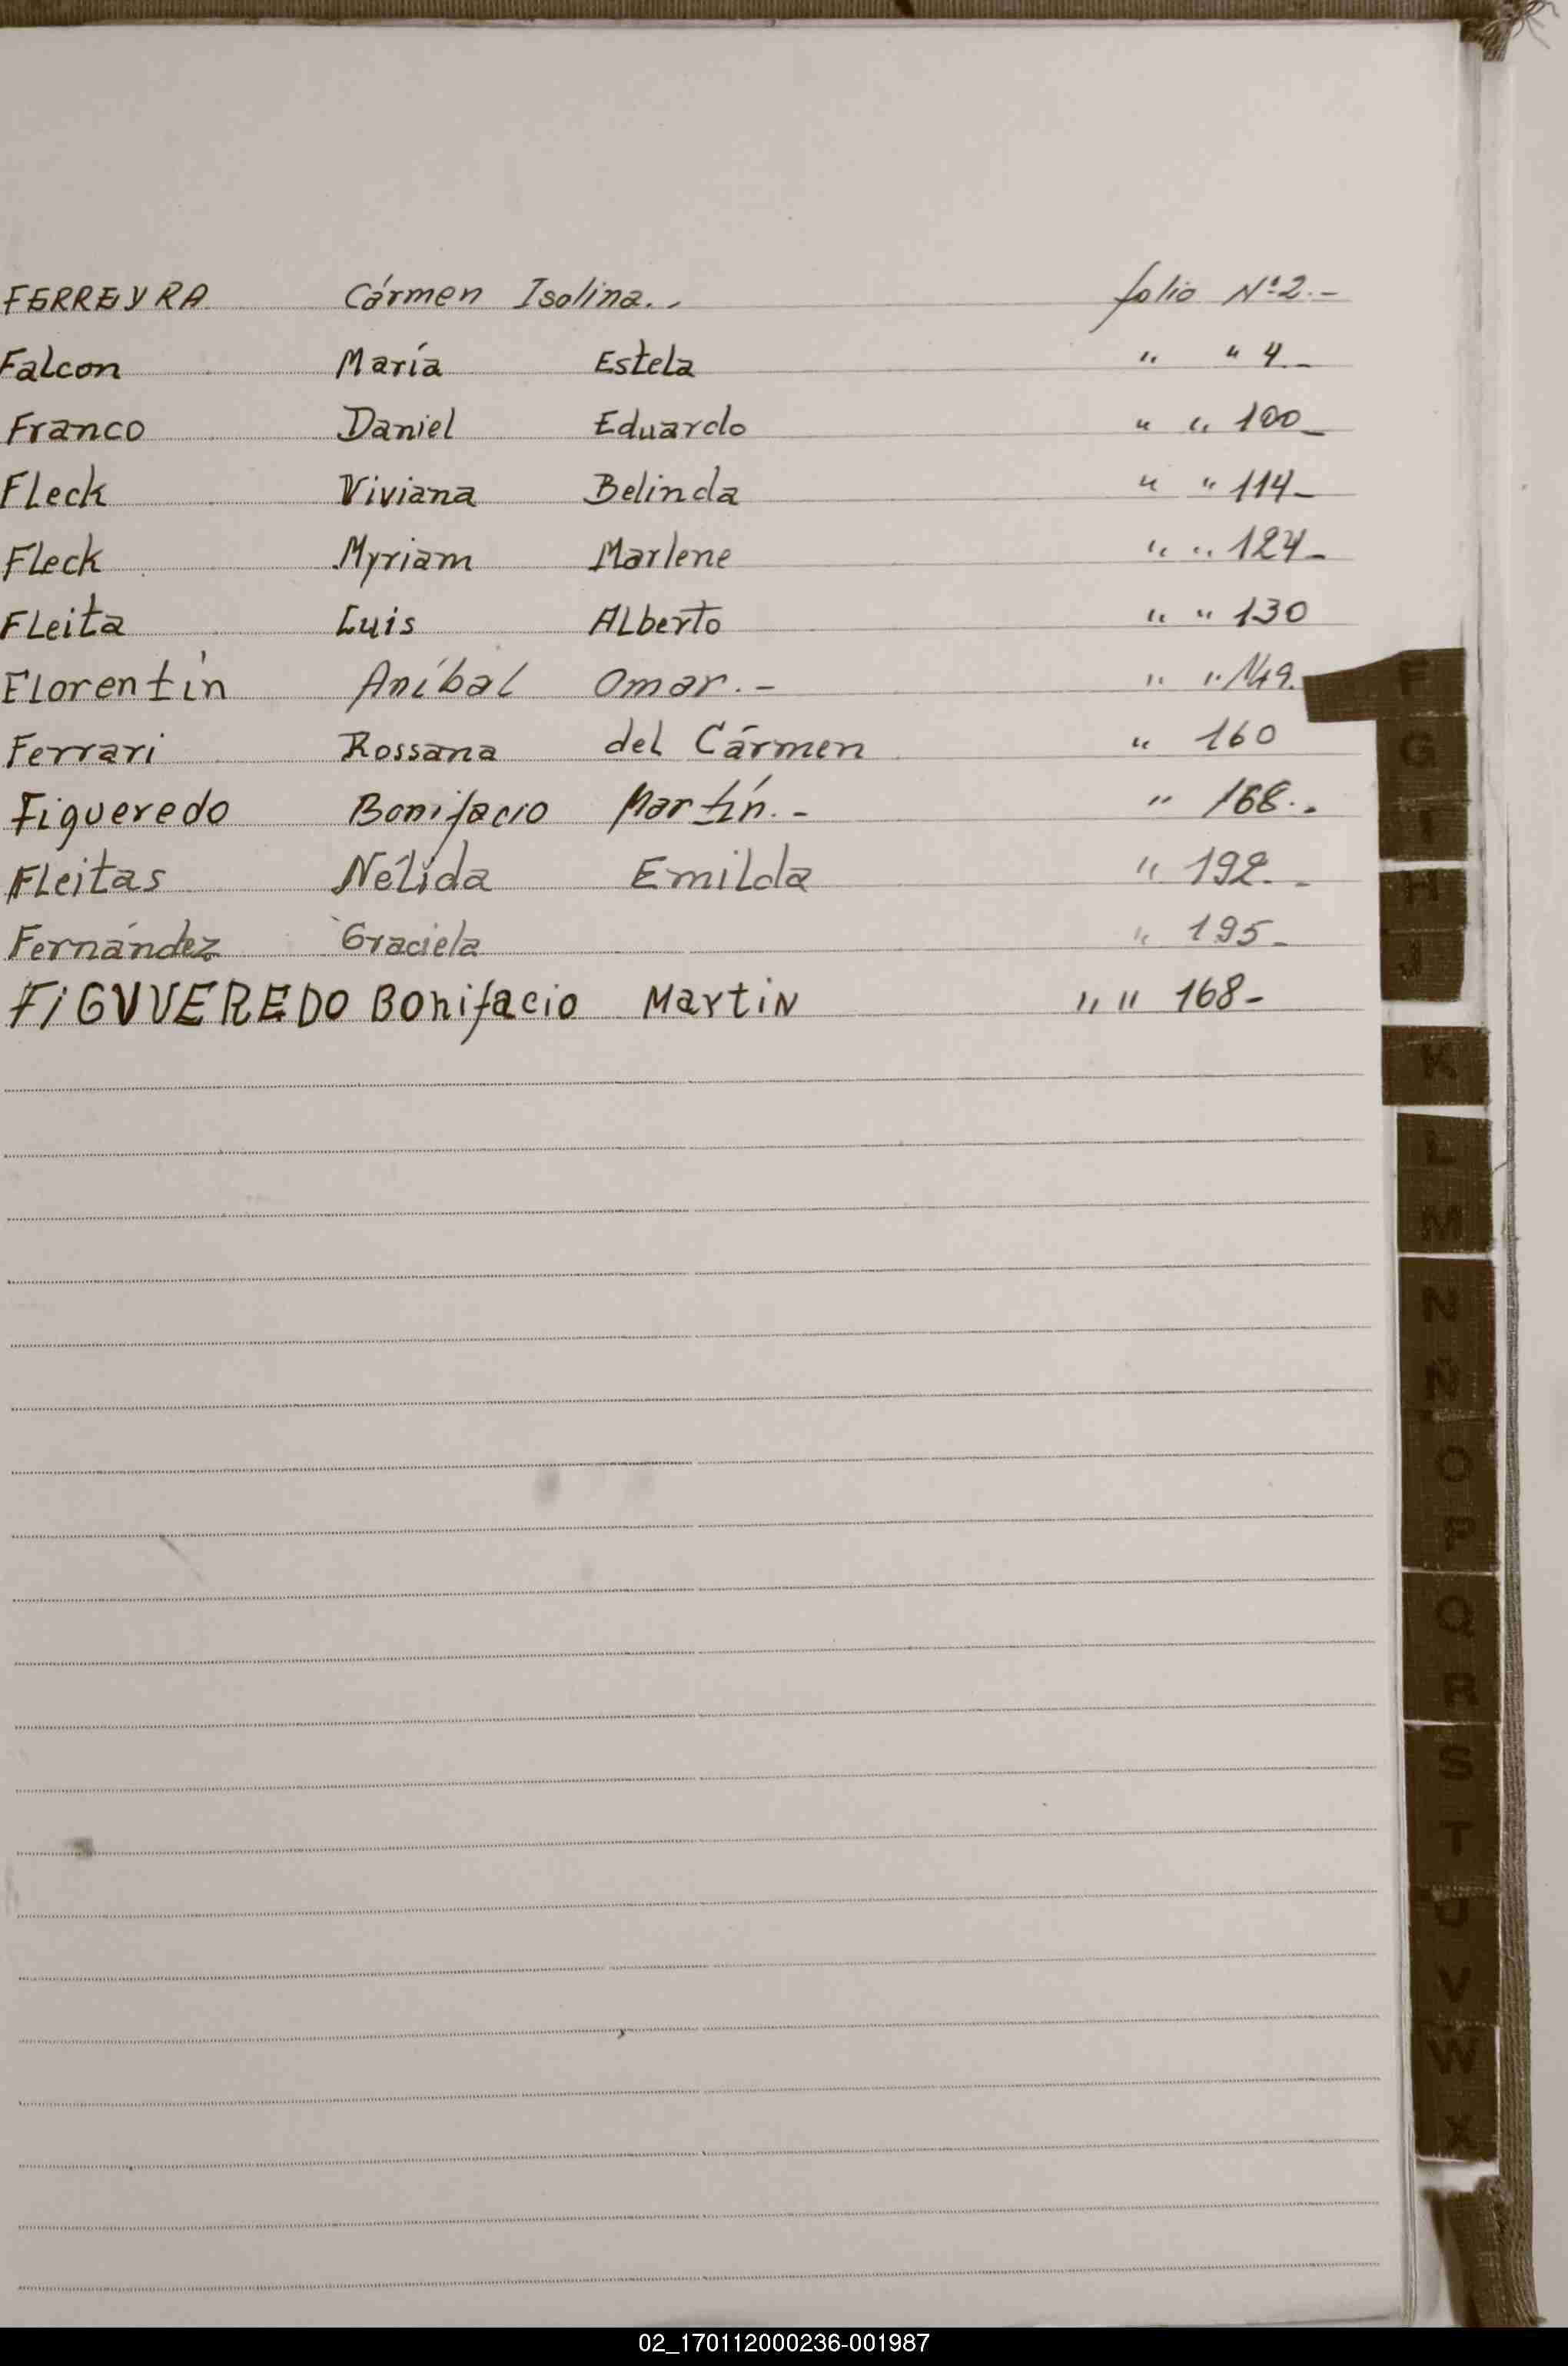 FERREYRA Cármen Isolina.. folio Nº 2.-
Falcon María Estela " " 4.-
Franco Daniel Eduardo " " 100-
Fleck Viviana Belinda " " 114-
Fleck Myriam Marlene " " 124-
FLeita Luis ALberto " " 130
Florentín Aníbal Omar.- " " 149.
Ferrari Rossana del Cármen " 160
Figueredo Bonifacio Martín.- " 168..
FLeitas Nélida Emilda " 192.-
Fernández Graciela " 195-
FiGUVEREDO Bonifacio MartiN " " 168-
F
G
I
H
J
K
L
M
N
Ñ
O
P
Q
R
S
T
U
V
W
X
02_170112000236-001987